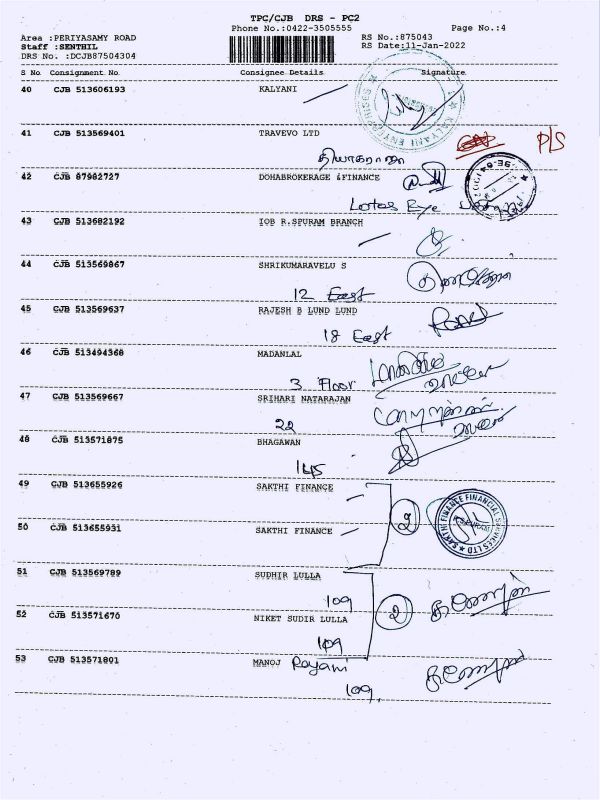 TPC/CJB DRS - PC2
Phone No.:0422-3505555 Page No.:4
Area :PERIYASAMY ROAD RS No.:875043
Staff :SENTHIL RS Date:11-Jan-2022
DRS No. :DCJB87504304
S No Consignment No Consignee Details Signature
40 CJB 513606193 KALYANI
P/S
41 CJB 513569401 TRAVEVO LTD
தியாகராஜா
42 CJB 87982727 DOHABROKERAGE &FINANCE
Lotos Eye
43 CJB 513682192 IOB R.SPURAM BRANCH
44 CJB 513569867 SHRIKUMARAVELU S
12 East
45 CJB 513569637 RAJESH B LUND LUND
18 East
46 CJB 513494368 MADANLAL
3 Floor
47 CJB 513569667 SRIHARI NATARAJAN
22
48 CJB 513571875 BHAGAWAN
145
49 CJB 513655926 SAKTHI FINANCE
2
SAKTHI FINANCE FINANCIAL SERVICES LTD
50 CJB 513655931 SAKTHI FINANCE
51 CJB 513569789 SUDHIR LULLA
109 2
52 CJB 513571670 NIKET SUDIR LULLA
109
53 CJB 513571801 MANOJ Rayani
109,